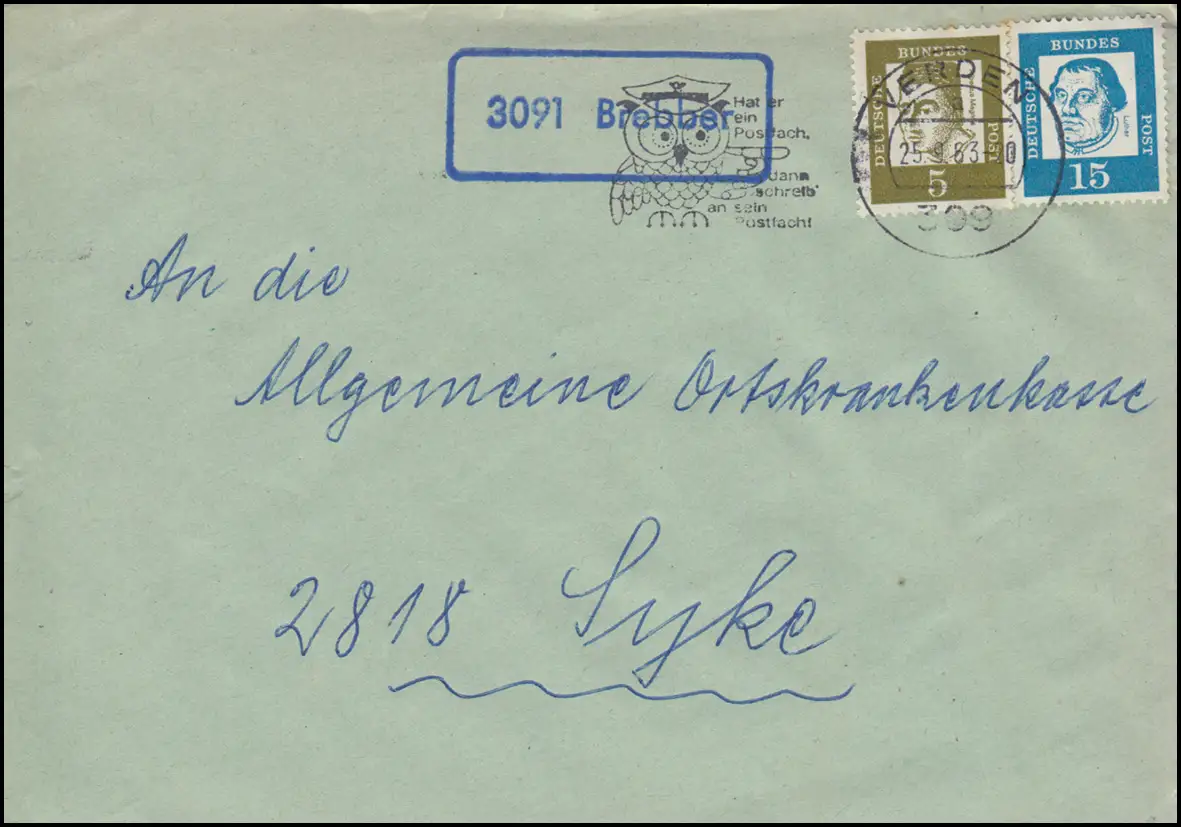 3091 Brebber
Hat er
ein
Postfach,
dann
schreib'
an sein
Postfach!
VERDEN
a
309
DEUTSCHE
BUNDES
POST
5
DEUTSCHE
BUNDES
POST
Luther
15
An die
Allgemeine Ortskrankenkasse
2818 Syke